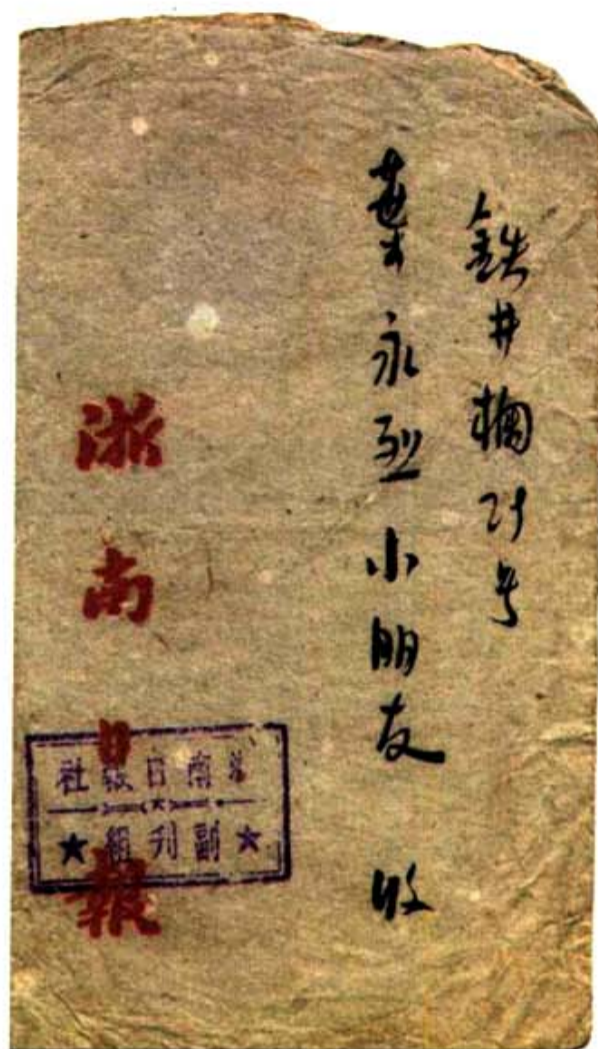 鉄井欄29号
葉永烈小朋友 收
浙南日報
浙南日報社
★副刊組★